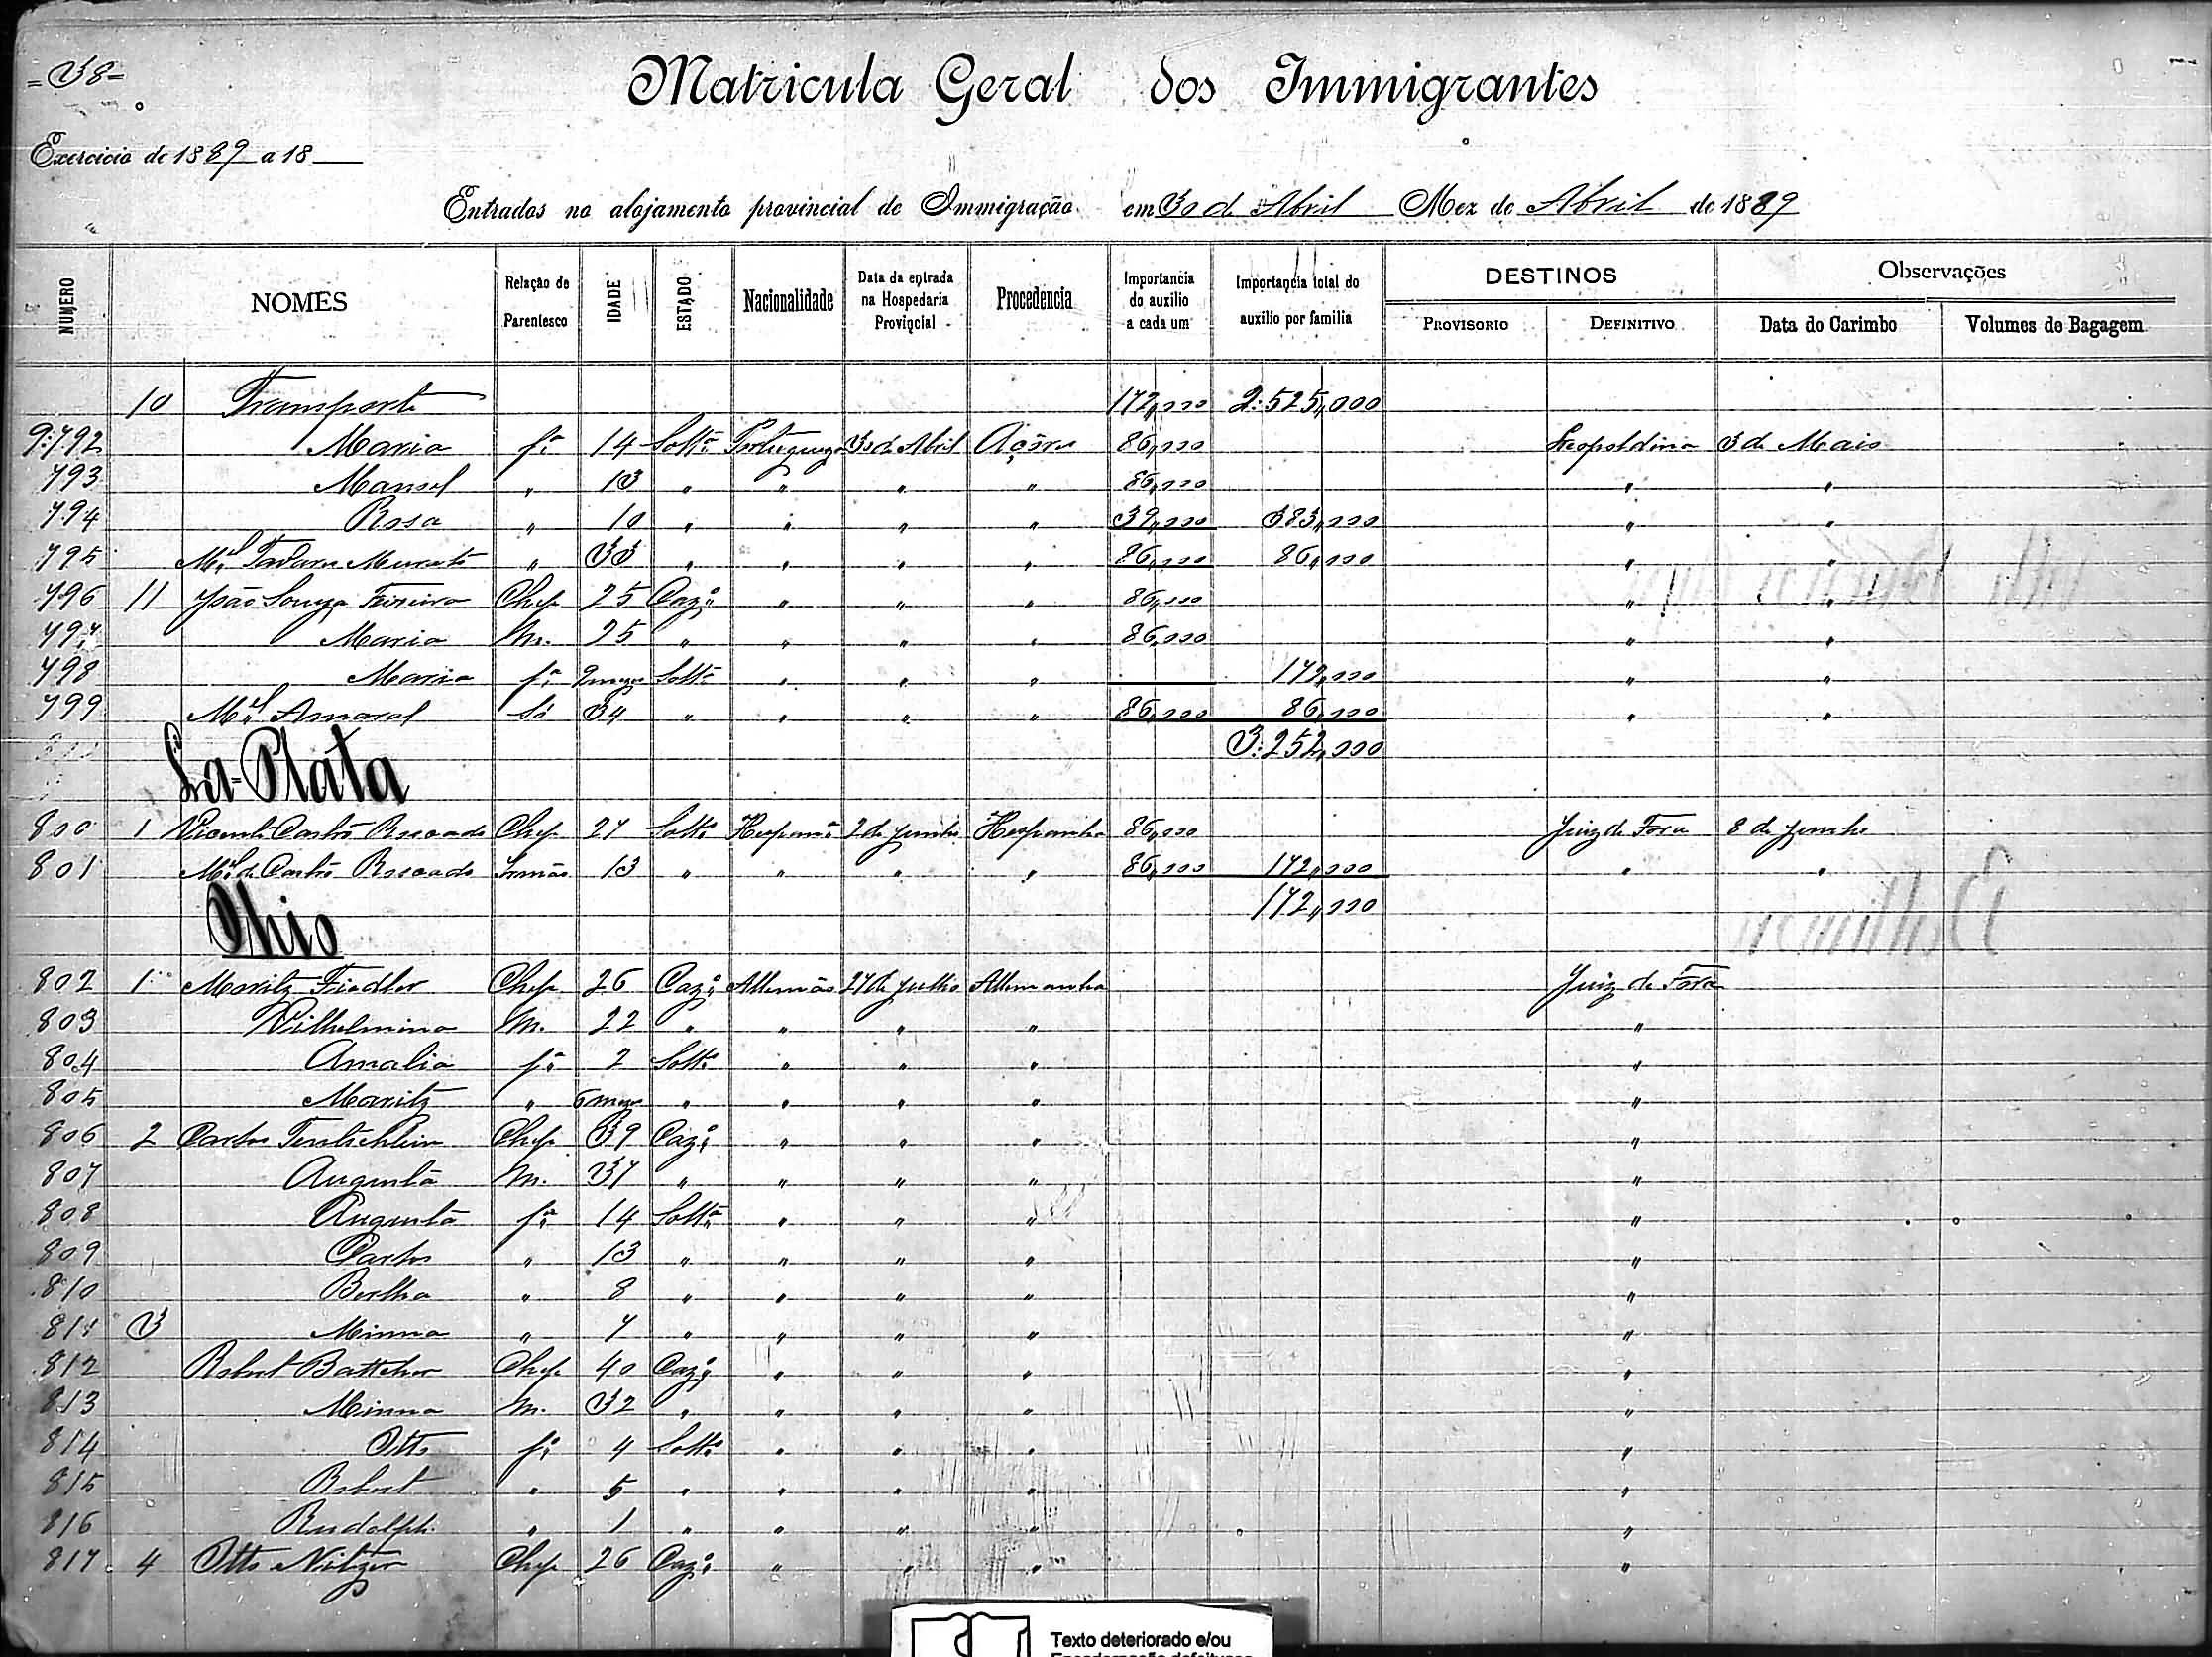 =38=
Matricula Geral dos Immigrantes
Exercicio de 1889 a 18
Entrados no alojamento provincial de Immigração em 30 de Abril Mez de Abril de 1889
NUMERO NOMES Relação de Parentesco IDADE ESTADO Nacionalidade Data da entrada na Hospedaria Provincial Procedencia Importancia do auxilio a cada um Importancia total do auxilio por familia DESTINOS PROVISORIO DEFINITIVO Observações Data do Carimbo Volumes de Bagagem
10 Transporte 172,000 2:525,000
9:792 Maria fª 14 Soltª Portugueza 30 de Abril Açôres 86,000 Leopoldina 3 de Maio
793 Manoel " 13 " " " " 86,000 " "
794 Rosa " 10 " " " " 39,000 383,000 " "
795 Mel Tavares " 33 " " " " 86,000 86,000 " "
796 11 João Souza Teixeira Chefe 25 Cazº " " " 86,000 " "
797 Maria M. 25 " " " " 86,000 " "
798 Maria fª 9 mezes Soltª " " " 172,000 " "
799 Mel Amaral Só 34 " " " " 86,000 86,000 " "
3:252,000
La-Plata
800 1 Vicente Castro Chefe 27 Soltº 2 de Junho Hespanha 86,000 Juiz de Fora 8 de Junho
801 Mel de Castro Irmão 13 " " " " 86,000 172,000 " "
172,000
Ohio
802 1 Moritz Fiedler Chefe 26 Cazº Allemão 27 de Julho Allemanha Juiz de Fora
803 Wilhelmina M. 22 " " " " "
804 Amalia fª 2 Soltª " " " "
805 Moritz " 6 mezes " " " " "
806 2 Carlos Chefe 39 Cazº " " " "
807 Augusta M. 37 " " " " "
808 Augusta fª 14 Soltª " " " "
809 Carlos " 13 " " " " "
810 Bertha " 8 " " " " "
811 3 Minna " 7 " " " " "
812 Robert Chefe 40 Cazº " " " "
813 Minna M. 32 " " " " "
814 Otto fº 4 Soltº " " " "
815 Robert " 5 " " " " "
816 Rudolph " 1 " " " " "
817 4 Otto Nitzer Chefe 26 Cazº " " " "
Texto deteriorado e/ou